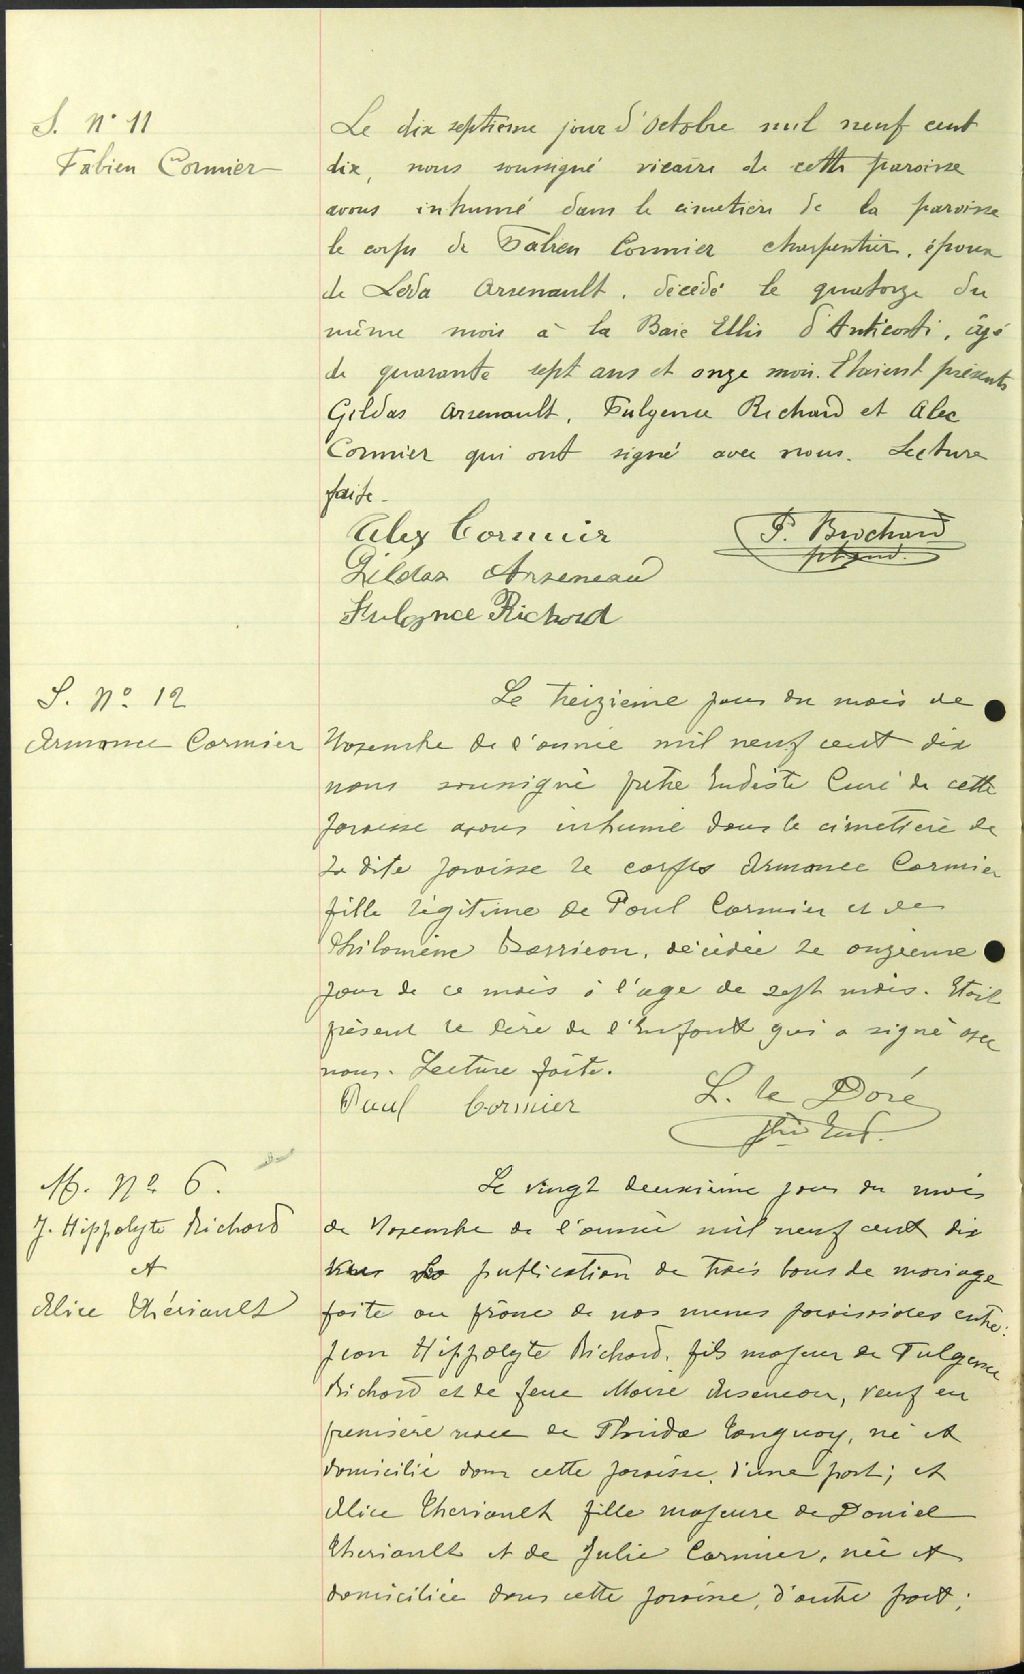 S. N° 11
Fabien Cormier
Le dix septième jour d'Octobre mil neuf cent
dix, nous soussigné vicaire de cette paroisse
avons inhumé dans le cimetière de la paroisse
le corps de Fabien Cormier charpentier, époux
de Léda Arsenault, décédé le quatorze du
même mois à la Baie Ellis d'Anticosti, âgé
de quarante sept ans et onze mois. Etaient présents
Gildas Arsenault, Fulgence Richard et Alec
Cormier qui ont signé avec nous. Lecture
faite.
Alex Cormier
P. Brochard
Gildas Arseneau
Fulgence Richard
S. N° 12
Armance Cormier
Le treizième jour du mois de
Novembre de l'année mil neuf cent dix
nous soussigné prêtre Eudiste Curé de cette
paroisse avons inhumé dans le cimetière de
la dite paroisse le corps Armance Cormier
fille légitime de Paul Cormier et de
Philomène décédée le onzième
jour de ce mois à l'age de sept mois. Etait
présent le père de l'Enfant qui a signé avec
nous. Lecture faite.
Paul Cormier
L. le Doré
ptre Eud.
M. N° 6.
J. Hippolyte Richard
et
Alice Thériault
Le vingt deuxième jour du mois
de Novembre de l'année mil neuf cent dix
vu la publication de trois bans de mariage
faite au prône de nos messes paroissiales entre:
Jean Hippolyte Richard, fils majeur de Fulgence
Richard et de feue Marie Arseneau, veuf en
première noce de Tanguay, né et
domicilié dans cette paroisse, d'une part; et
Alice Theriault fille majeure de Daniel
Theriault et de Julie Cormier, née et
domiciliée dans cette paroisse, d'autre part;